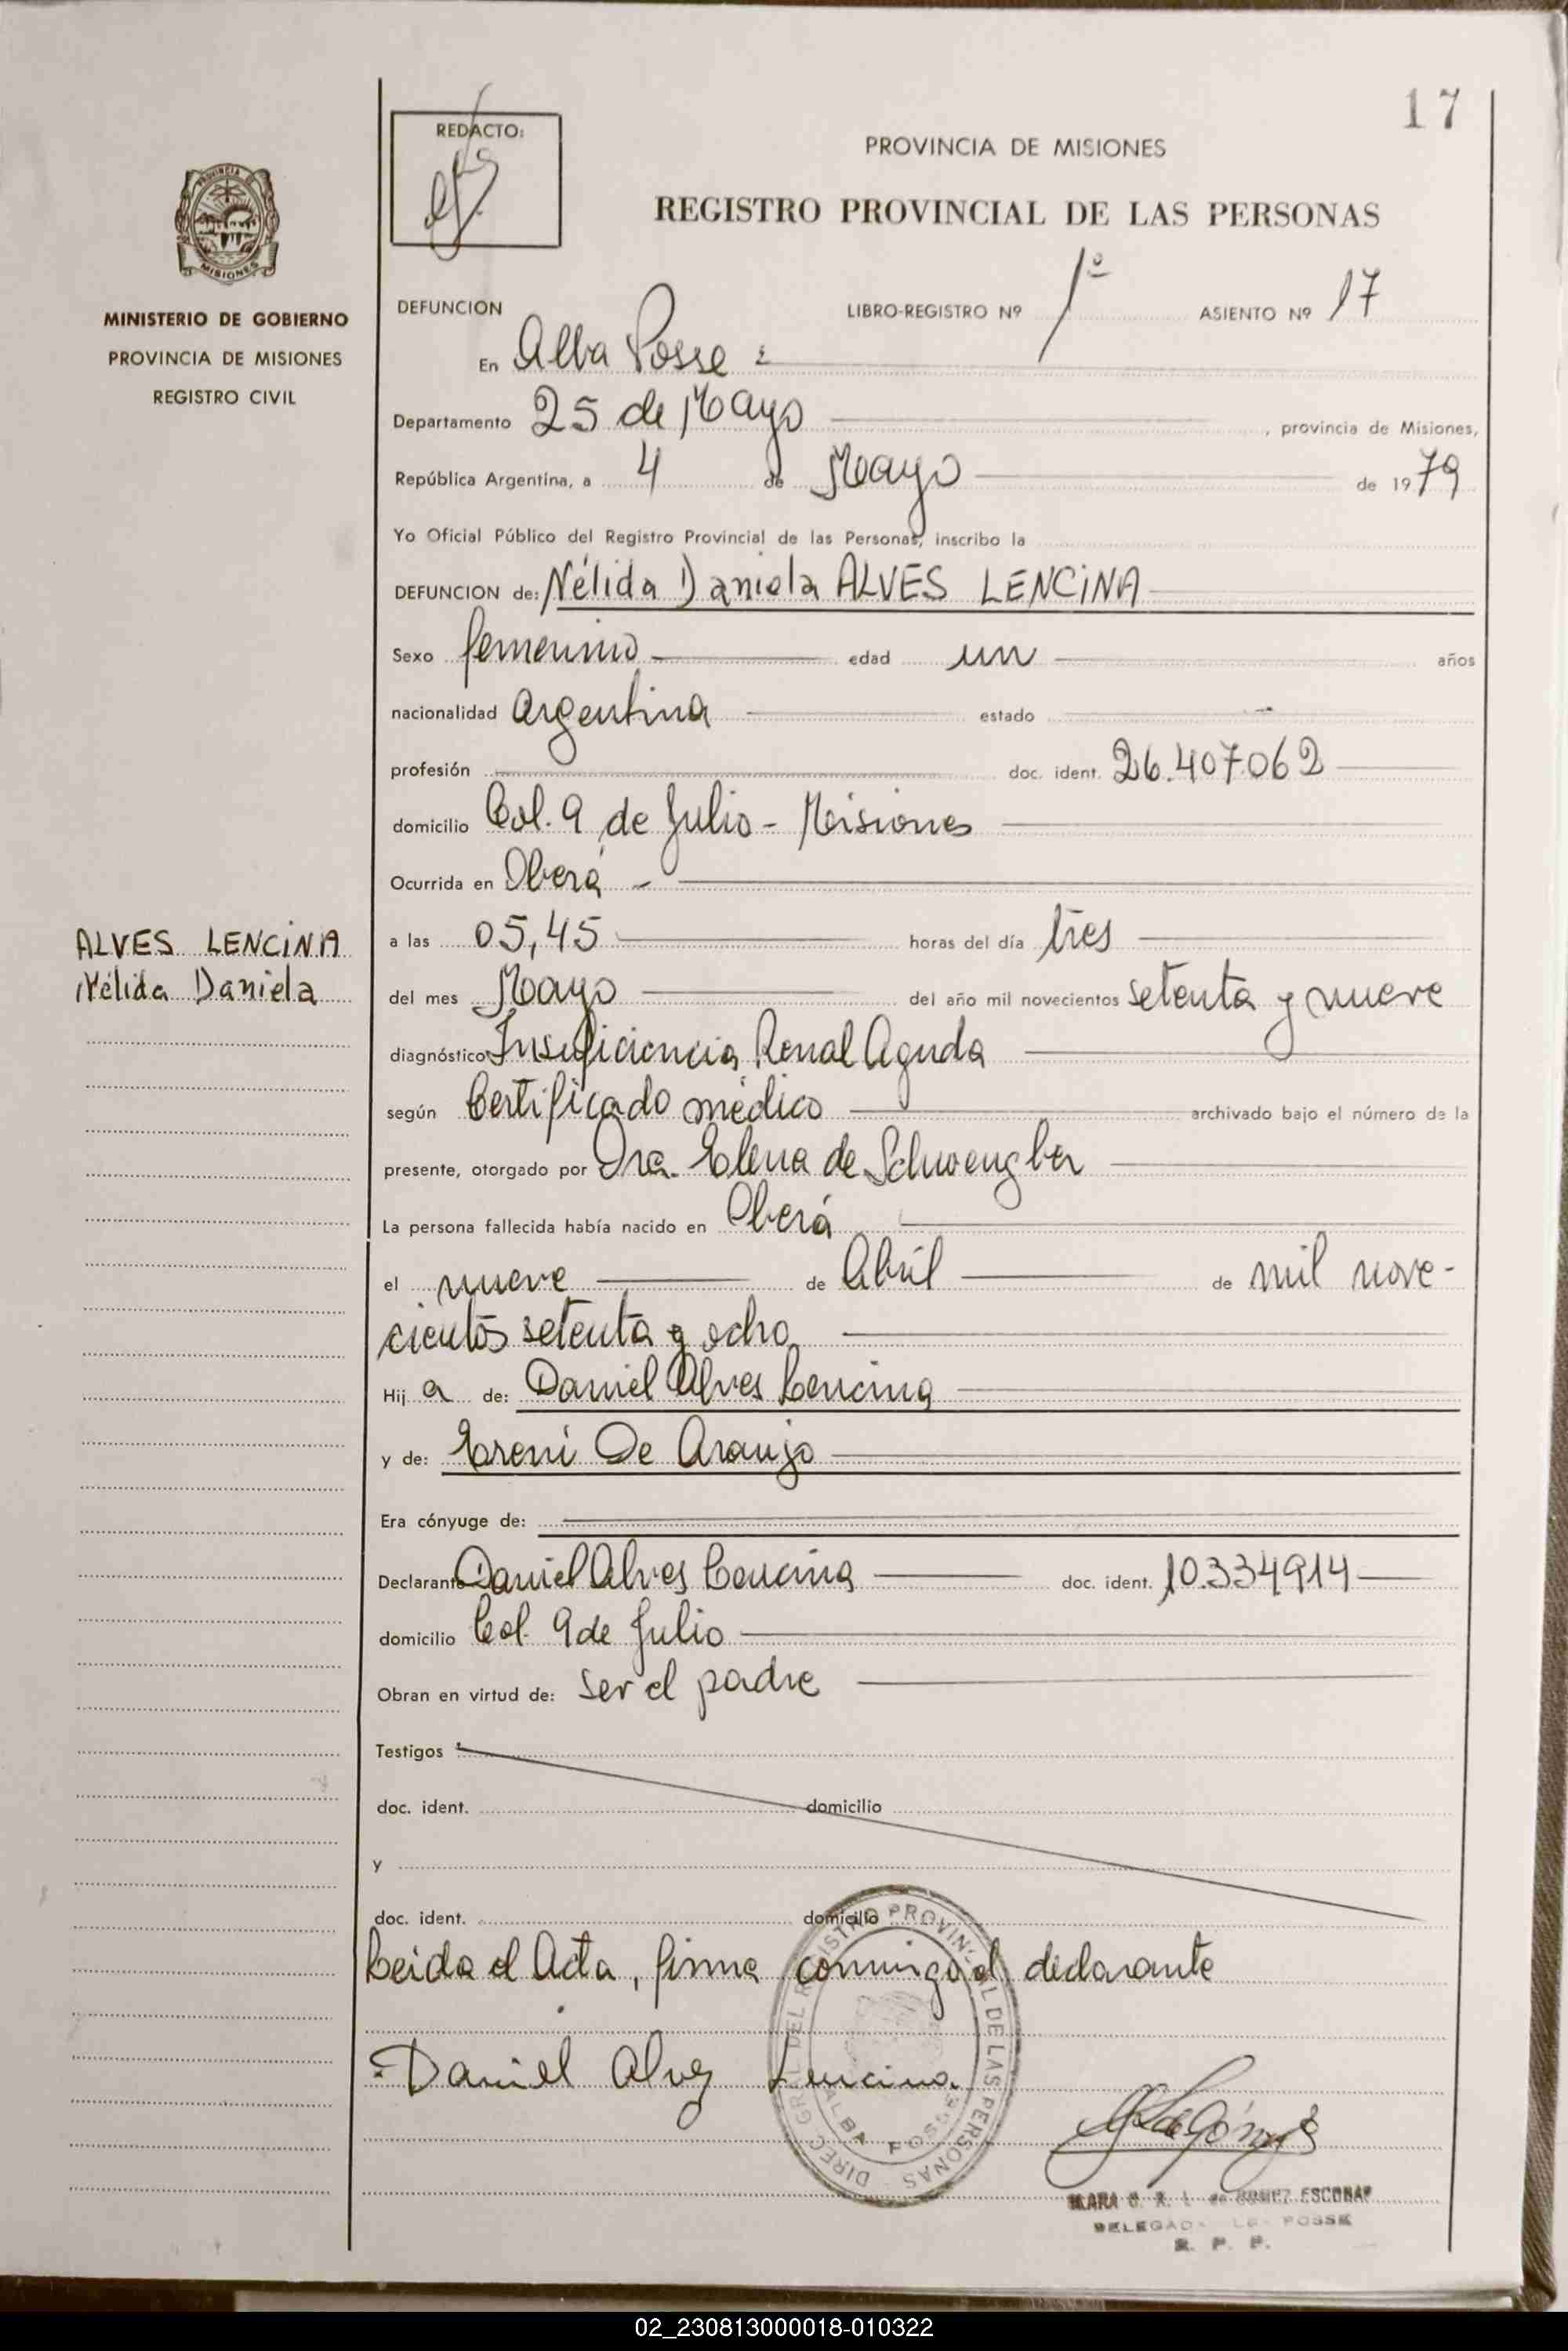 17
REDACTO:
PROVINCIA DE MISIONES
REGISTRO PROVINCIAL DE LAS PERSONAS
MISIONES
MINISTERIO DE GOBIERNO
PROVINCIA DE MISIONES
REGISTRO CIVIL
DEFUNCION LIBRO-REGISTRO Nº 1º ASIENTO Nº 17
En Alba Posse
Departamento 25 de Mayo, provincia de Misiones,
República Argentina, a 4 de Mayo de 1979
Yo Oficial Público del Registro Provincial de las Personas, inscribo la
DEFUNCION de: Nélida Daniela ALVES LENCINA
Sexo femenino edad un años
nacionalidad argentina estado
profesión doc. ident. 26.407.062
domicilio Col. 9 de Julio - Misiones
Ocurrida en Oberá -
ALVES LENCINA
Nélida Daniela
a las 05,45 horas del día tres
del mes Mayo del año mil novecientos setenta y nueve
diagnóstico Insuficiencia Renal Aguda
según Certificado médico archivado bajo el número de la
presente, otorgado por Dra. Elena de Schwengber
La persona fallecida había nacido en Oberá
el nueve de Abril de mil nove-
cientos setenta y ocho
Hija de: Daniel Alves Lencina
y de: Ereni De Araujo
Era cónyuge de:
Declarante Daniel Alves Lencina doc. ident. 10.334914
domicilio Col. 9 de Julio
Obran en virtud de: ser el padre
Testigos
doc. ident. domicilio
y
doc. ident. domicilio
Leida el Acta, firma conmigo el declarante
Daniel Alves Lencina
DIREC. GRL. DEL REGISTRO PROVINCIAL DE LAS PERSONAS
ALBA POSSE
de GOMEZ ESCOBAR
POSSE
R. P. P.
02_230813000018-010322